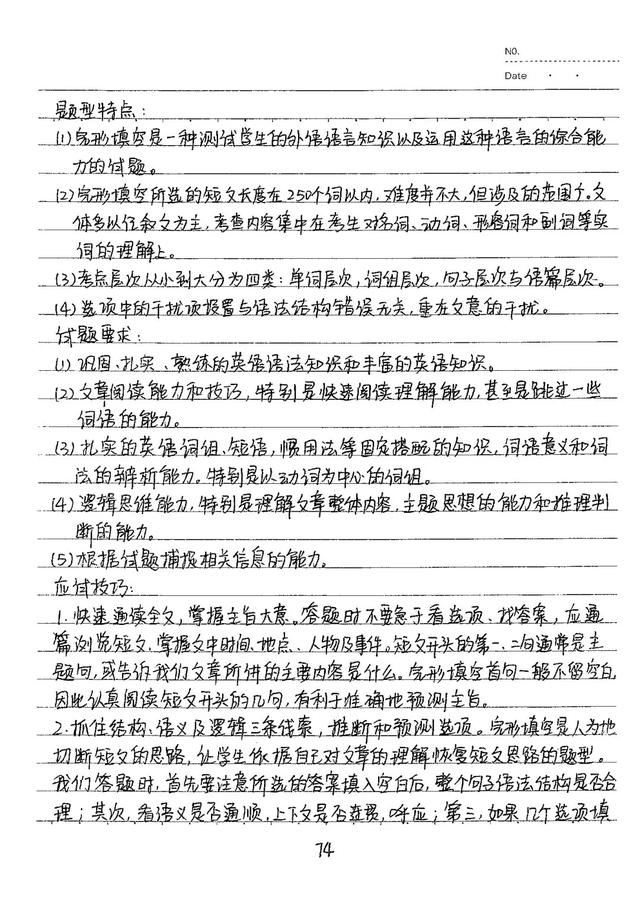 NO.
Date
题型特点：
(1)完形填空是一种测试学生的外语语言知识以及运用这种语言的综合能
力的试题。
(2)完形填空所选的短文长度在250个词以内，难度并不大，但涉及的范围广。文
体多以记叙文为主，考查内容集中在考生对名词、动词、形容词和副词等实
词的理解上。
(3)考点层次从小到大分为四类：单词层次，词组层次，句子层次与语篇层次。
(4)选项中的干扰项设置与语法结构错误无关，重在文意的干扰。
试题要求：
(1)巩固、扎实、熟练的英语语法知识和丰富的英语知识。
(2)文章阅读能力和技巧，特别是快速阅读理解能力，甚至是跳过一些
词语的能力。
(3)扎实的英语词组、短语，惯用法等固定搭配的知识，词语意义和词
法的辨析能力。特别是以动词为中心的词组。
(4)逻辑思维能力，特别是理解文章整体内容，主题思想的能力和推理判
断的能力。
(5)根据试题捕捉相关信息的能力。
应试技巧：
1.快速通读全文，掌握主旨大意。答题时不要急于看选项、找答案，应通
篇浏览短文，掌握文中时间、地点、人物及事件。短文开头的第一、二句通常是主
题句，或告诉我们文章所讲的主要内容是什么。完形填空首句一般不留空白，
因此认真阅读短文开头的几句，有利于准确地预测主旨。
2.抓住结构、语义及逻辑三条线索，推断和预测选项。完形填空是人为地
切断短文的思路，让学生依据自己对文章的理解恢复短文思路的题型。
我们答题时，首先要注意所选的答案填入空白后，整个句子语法结构是否合
理；其次，看语义是否通顺，上下文是否连贯，呼应；第三，如果几个选项填
74